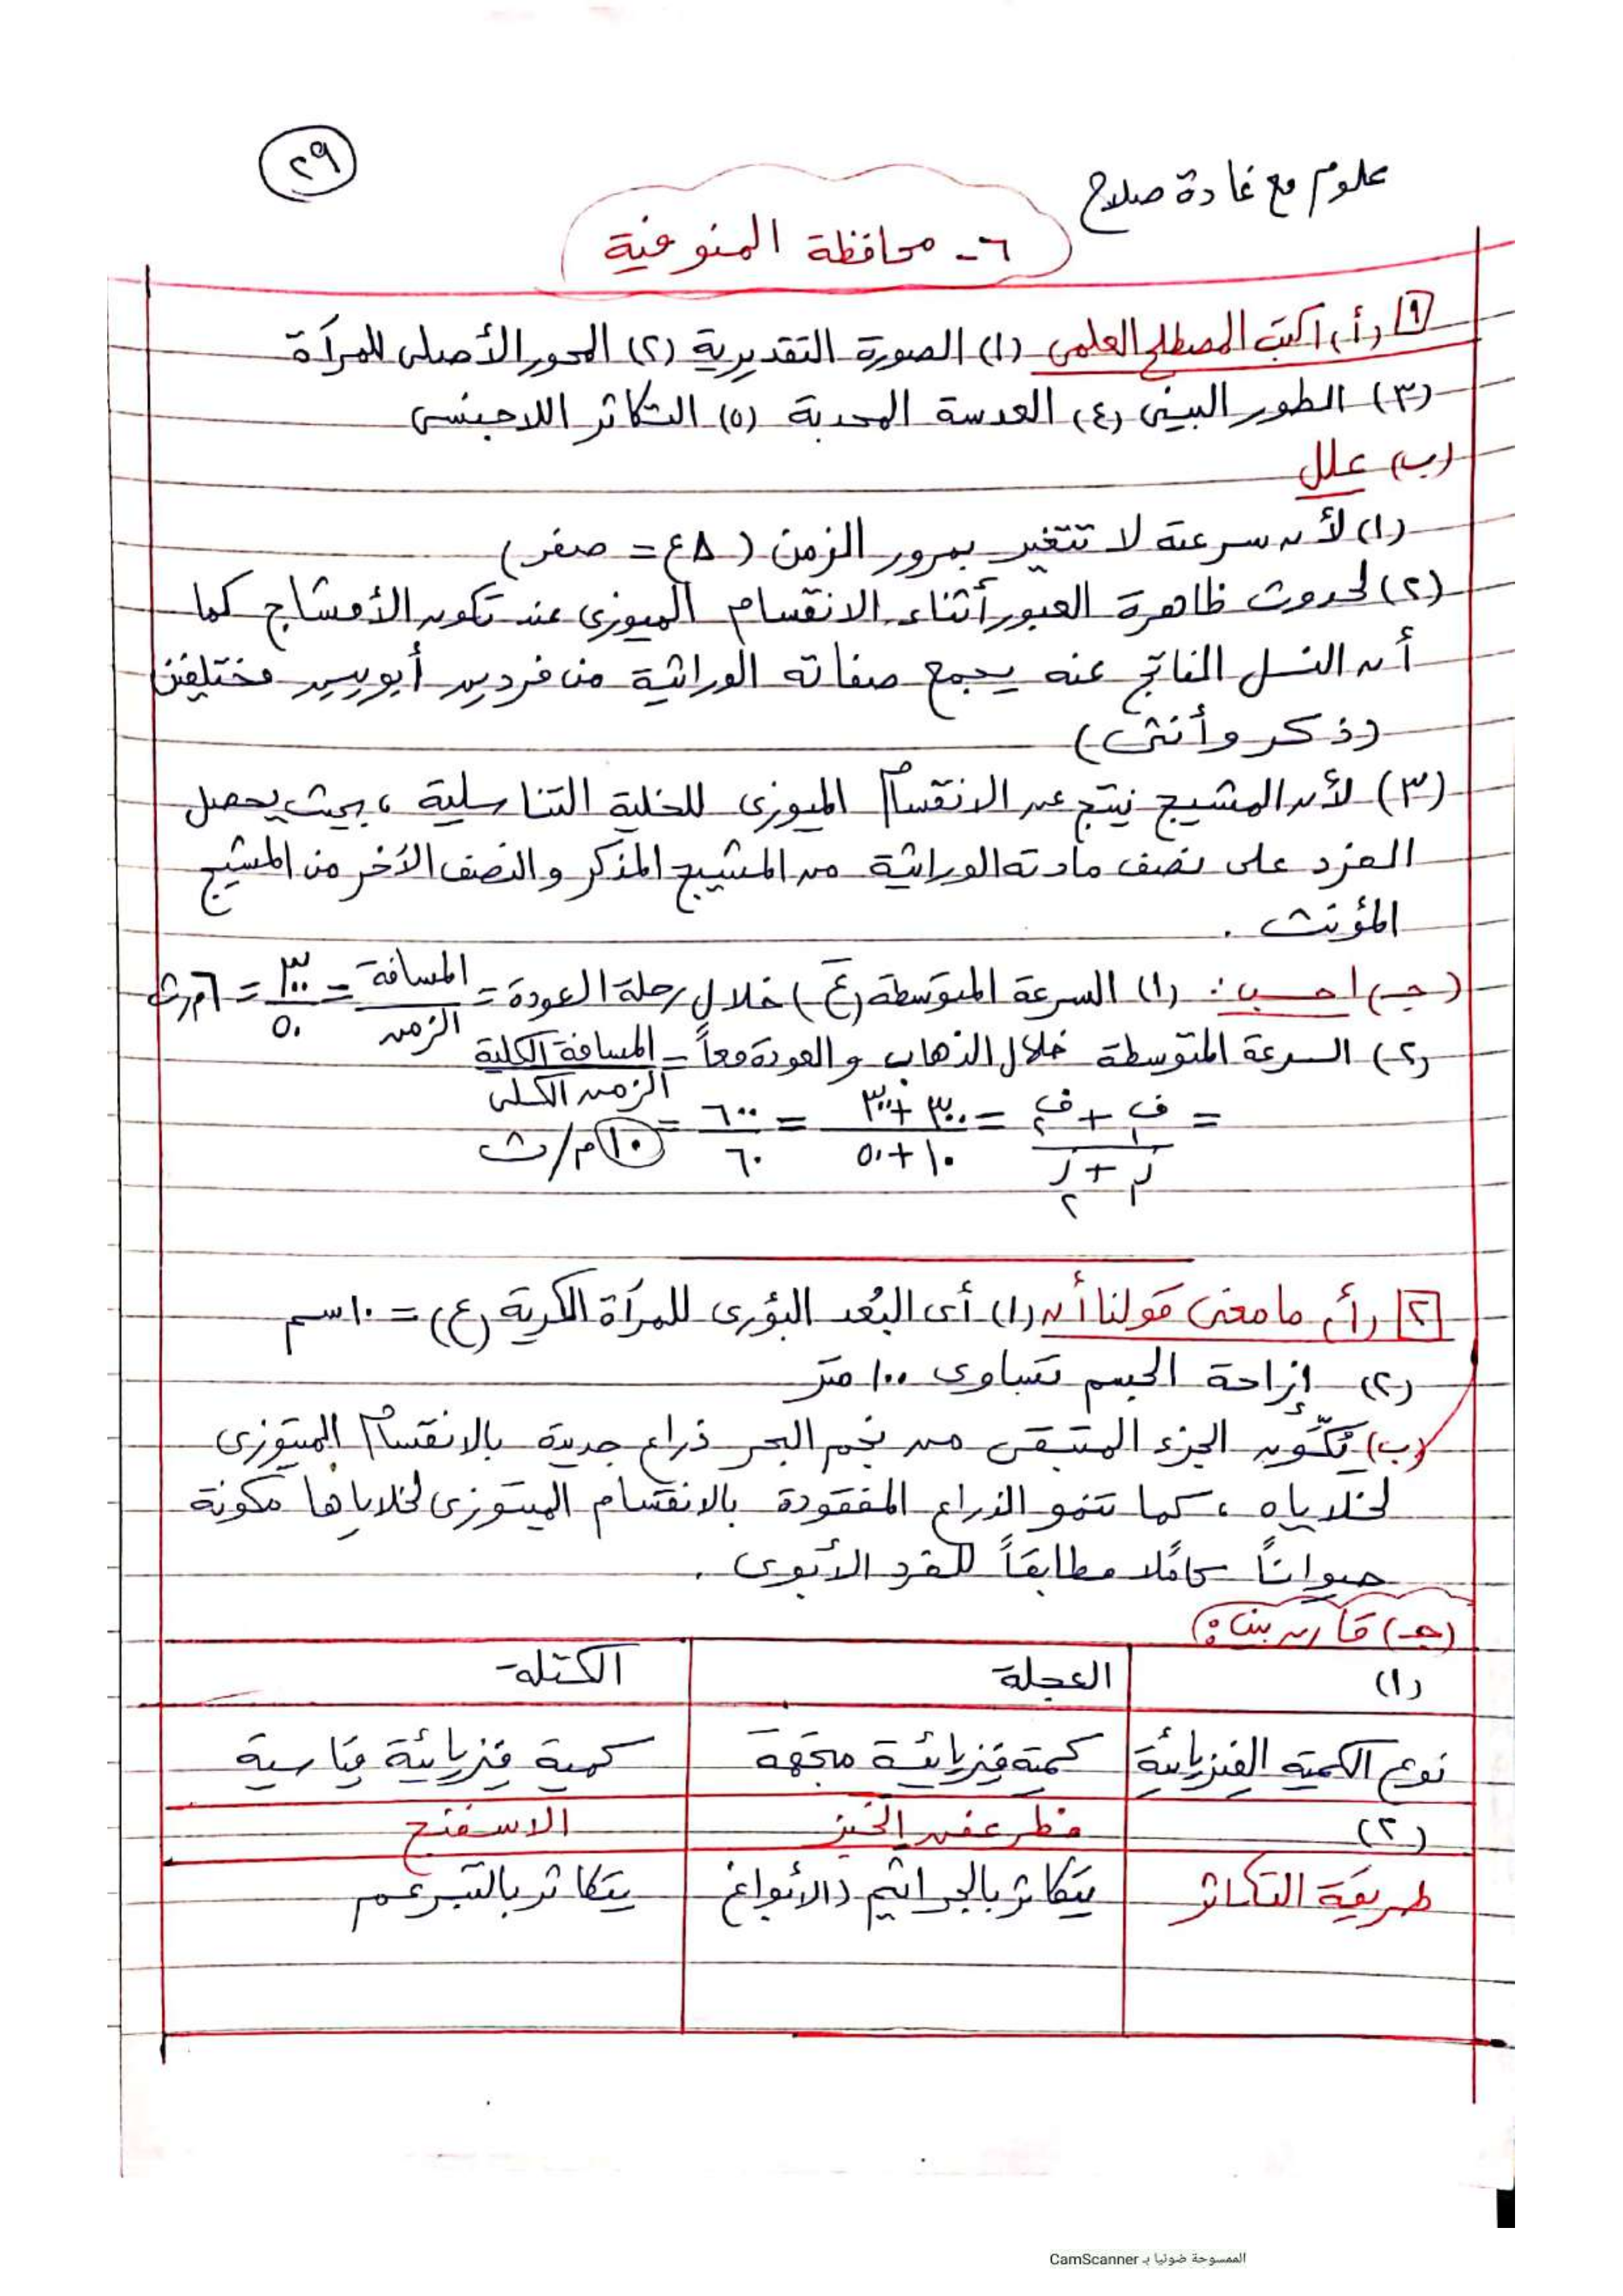 علوم مع غادة صلاح
٢٩
٦- محافظة المنوفية
١ (أ) اكتب المصطلح العلمى (١) الصورة التقديرية (٢) المحور الأصلى للمرآة
(٣) الطور البينى (٤) العدسة المحدبة (٥) التكاثر اللاجنسى
(ب) علل
(١) لأن سرعته لا تتغير بمرور الزمن (Δع = صفر)
(٢) لحدوث ظاهرة العبور أثناء الانقسام الميوزى عند تكوين الأمشاج كما
أن النسل الناتج عنه يجمع صفاته الوراثية من فردين أبويين مختلفين
(ذكر وأنثى)
(٣) لأن المشيج نيتج عن الانقسام الميوزى للخلية التناسلية، بحيث يحصل
الفرد على نصف مادته الوراثية من المشيج المذكر والنصف الآخر من المشيج
المؤنث .
(جـ) احسب: (١) السرعة المتوسطة (ع̄) خلال رحلة العودة = المسافة / الزمن = ٣٠٠ / ٥٠ = ٦ م/ث
(٢) السرعة المتوسطة خلال الذهاب والعودة معاً = المسافة الكلية / الزمن الكلى
= ف١ + ف٢ / ز١ + ز٢ = ٣٠٠ + ٣٠٠ / ١٠ + ٥٠ = ٦٠٠ / ٦٠ = ١٠ م/ث
٢ (أ) ما معنى قولنا أن (١) أى البُعد البؤرى للمرآة الكرية (ع) = ١٠ سم
(٢) إزاحة الجسم تساوى ١٠٠ متر
(ب) يُكَوِّن الجزء المتبقى من نجم البحر ذراع جديدة بالانقسام الميتوزى
لخلاياه، كما تنمو الذراع المفقودة بالانقسام الميتوزى لخلاياها مكونة
حيواناً كاملًا مطابقاً للفرد الأبوى .
(جـ) قارن بين:
(١) العجلة الكتلة
نوع الكمية الفيزيائية كمية فيزيائية متجهة كمية فيزيائية قياسية
(٢) فطر عفن الخبز الاسفنج
طريقة التكاثر يتكاثر بالجراثيم (الأبواغ يتكاثر بالتبرعم
الممسوحة ضوئيا بـ CamScanner